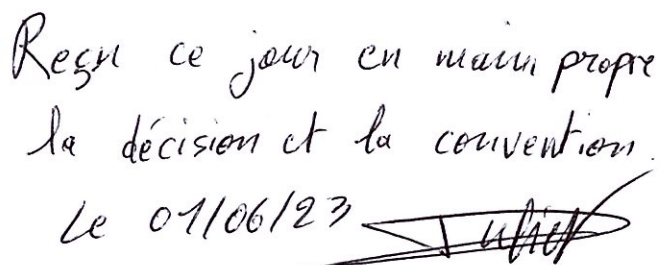 Reçu ce jour en main propre
la décision et la convention.
Le 01/06/23